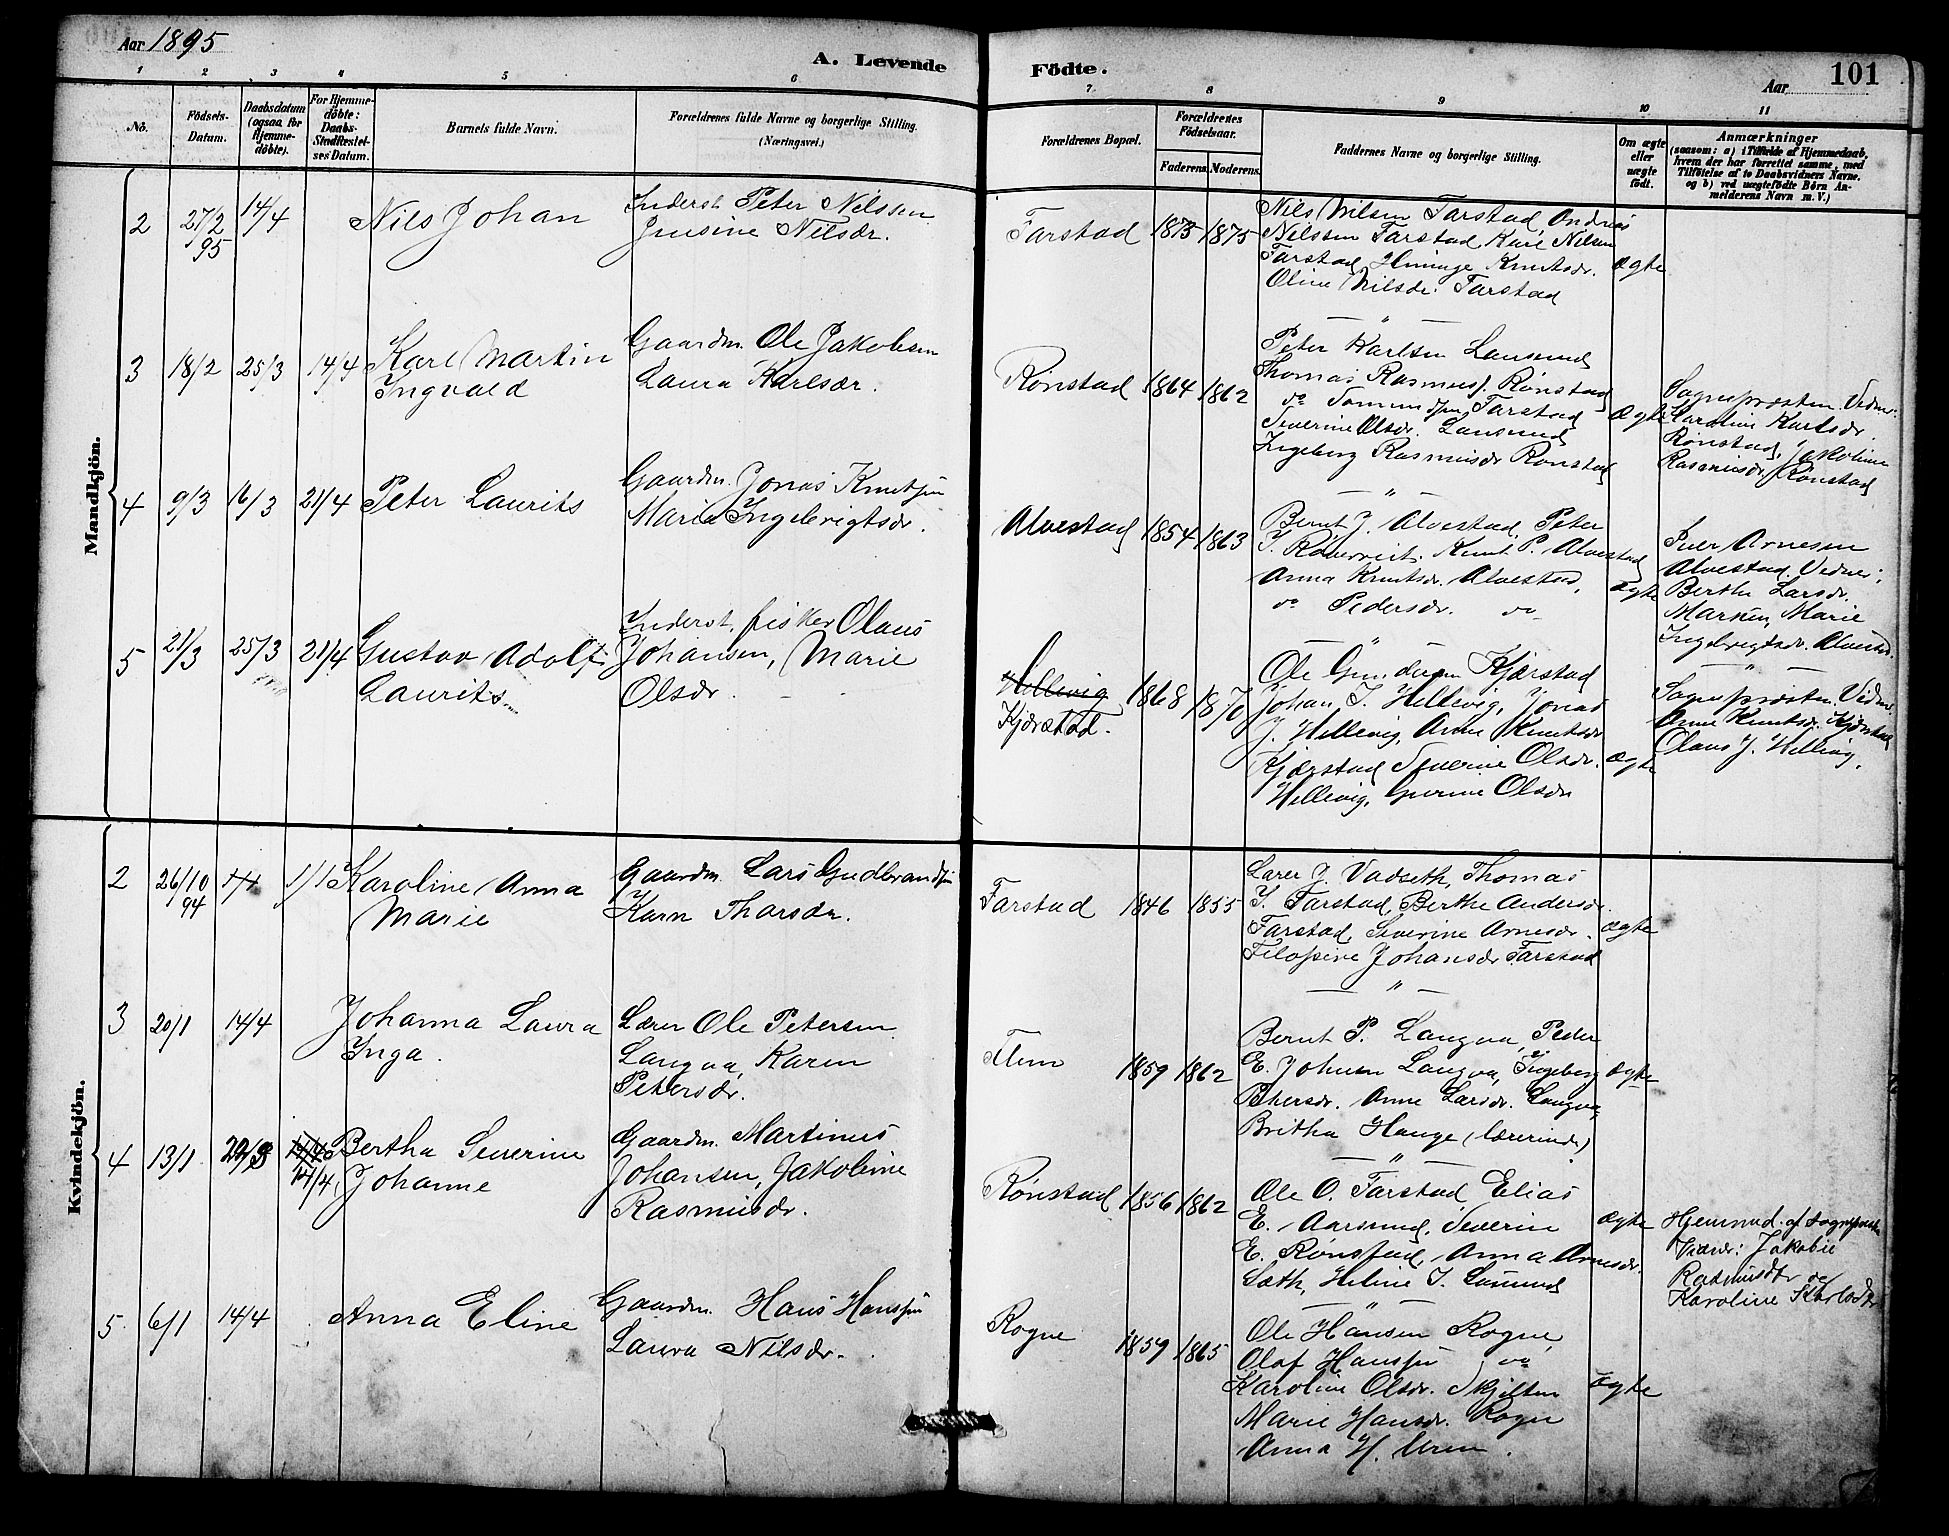 Aar 1895
A. Levende
Födte.
Aar
101
1 2 3 4 5 6 7 8 9 10 11
No.
Födsels-
Datum.
Daabsdatum
(ogsaa for
Hjemme-
döbte).
For Hjemme-
döbte:
Daabs-
Stadfæstel-
ses Datum.
Barnets fulde Navn.
Forældrenes fulde Navne og borgerlige Stilling.
(Næringsvei.)
Forældrenes Bopæl.
Forældrenes
Födselsaar.
Faderens. Moderens.
Faddernes Navne og borgerlige Stilling.
Om ægte
eller
uægte
födt.
Anmærkninger
(saasom: a) i Tilfælde af Hjemmedaab,
hvem der har forrettet samme, med
Tilföielse af to Daabsvidners Navne,
og b) ved uægtefödte Börn An-
melderens Navn m. V.)
Mandkjön.
2
27/2
95
14/4
Nils Johan
Inderst Peter Nilssen
Jensine Nilsdr.
Farstad
1873
1875
Nils Nilsen Farstad, Andreas
Nilssen Farstad, Karl Nilsen
Farstad, Knutsdr.
Oline Nilsdr. Farstad
ægte
— " —
3
18/2
25/3
14/4
Karl Martin
Ingvald
Gaardm. Ole Jakobsen
Laura Karlsdr.
Rønstad
1864
1862
Peter Karlsen Lansund
Thomas Rasmusf. Rønstad
do Farstad
Severine Olsdr. Lansund
Ingeborg Rasmusdr Rønstad
ægte
Sognepræsten. Vidner:
Karoline Karlsdr.
Rønstad, Jakobine
Rasmusdr Rønstad
— " —
4
9/3
16/3
21/4
Peter Laurits
Gaardm. Jonas Knutsen
Marie Ingebrigtsdr.
Alvestad
1854
1863
Bernt J. Alvestad, Peter
Knut P. Alvestad
Anna Knutsdr. Alvestad,
do Pedersdr. do
ægte
Iver Arnesen
Alvestad. Vidner:
Berthe Larsdr.
Marie
Ingebrigtsdr. Alvestad.
— " —
5
21/3
25/3
21/4
Gustav Adolf
Laurits
Inderst, fisker Olaus
Johansen, Marie
Olsdr.
Hellevig
Kjærstad.
1868
1870
Ole Gundersen Kjærstad
Johan J. Hellevig, Jonas
J. Hellevig, Anne Knutsdr
Kjærstad Severine Olsdr.
Hellevig, Gurine Olsdr
ægte
Sognepræsten. Vidner
Anne Knutsdr. Kjærstad
Olaus J. Hellevig.
Kvindekjön.
2
26/10
94
1/1
Karoline Anna
Marie
Gaardm. Lars Gudbrandsen
Karn Tharsdr.
Farstad
1846
1855
Larer J. Vadseth, Thomas
J. Farstad, Berthe Andersdr.
Farstad, Severine Arnesdr.
Johansdr Farstad
ægte
— " —
3
20/1
14/4
Johanna Laura
Inga.
Lærer Ole Petersen
Langva, Karen
Petersdr.
Flem
1859
1862
Bernt P. Langva, Peder
E. Johnsen Langva, Ingeborg
Petersdr. Anne Larsdr. Langva,
Britha Hauge (lærerinde)
ægte
— " —
4
13/1
14/4
Bertha Severine
Johanne
Gaardm. Martinus
Johansen, Jakobine
Rasmusdr.
Rønstad
1856
1862
Ole O. Farstad, Elias
E. Aarsund, Severin
E. Rønstad, Anna Arnesdr.
Sæth, Heline J.
ægte
Hjemmed. af Sognepræsten
Vidner: Jakobine
Rasmusdtr og
Karoline Karlsdtr
— " —
5
6/1
14/4
Anna Eline
Gaardm. Hans Hansen
Laura Nilsdr.
Rogne
1859
1865
Ole Hansen Rogne
Olaf Hansen do
Karoline Olsdr. Skjelten
Marie Hansdr. Rogne
Anna H. Uren.
ægte